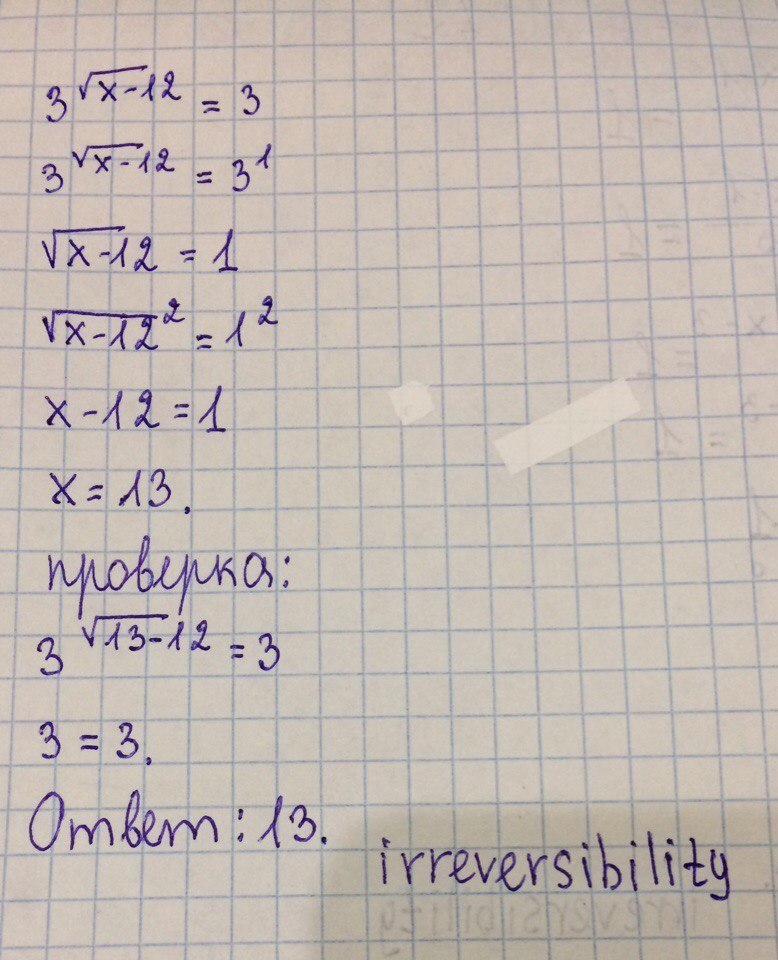 3^√(x-12) = 3
3^√(x-12) = 3^1
√(x-12) = 1
√(x-12)^2 = 1^2
x-12=1
x=13.
проверка:
3^√(13-12) = 3
3=3.
Ответ: 13.
irreversibility